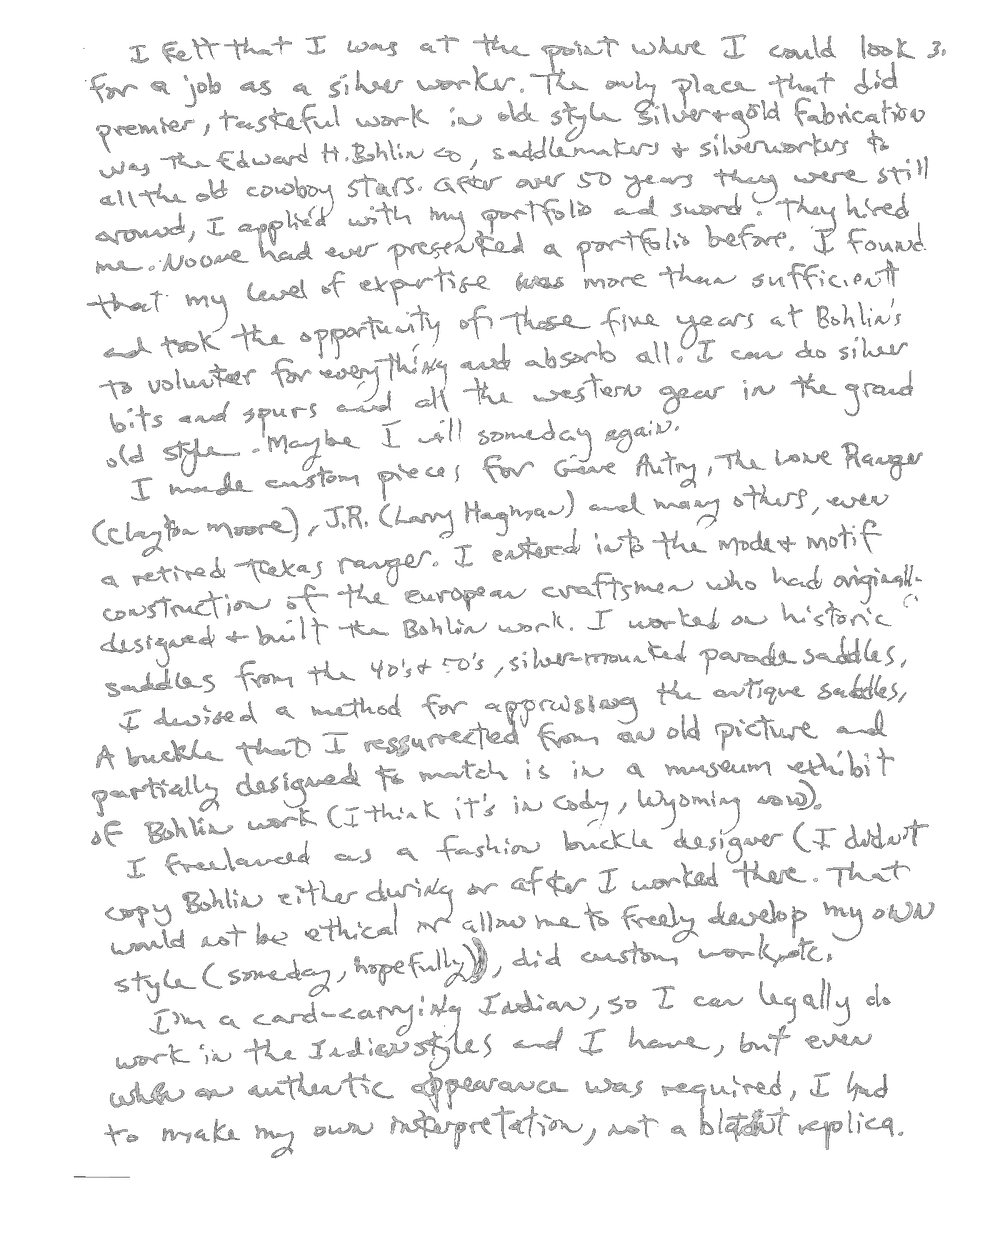 I felt that I was at the point where I could look 3.
for a job as a silver worker. The only place that did
premier, tasteful work in old style silver & gold fabrication
was the Edward H. Bohlin Co, saddlemakers & silverworkers to
all the old cowboy stars. After over 50 years they were still
around, I applied with my portfolio and sword. They hired
me. Noone had ever presented a portfolio before. I found
that my level of expertise was more than sufficient
and took the opportunity of those five years at Bohlin's
to volunteer for everything and absorb all. I can do silver
bits and spurs and all the western gear in the grand
old style. Maybe I will someday again.
I made custom pieces for Gene Autry, The Lone Ranger
(Clayton Moore), J.R. (Larry Hagman) and many others, even
a retired Texas ranger. I entered into the mode & motif
construction of the european craftsmen who had originall-
designed & built the Bohlin work. I worked on historic
saddles from the 40's & 50's, silver-mounted parade saddles,
I devised a method for appraising the antique saddles,
A buckle that I ressurrected from an old picture and
partially designed to match is in a museum exhibit
of Bohlin work (I think it's in Cody, Wyoming now).
I freelanced as a fashion buckle designer (I didn't
copy Bohlin either during or after I worked there. That
would not be ethical nr allow me to freely develop my own
style (someday, hopefully)), did custom work, etc.
I'm a card-carrying Indian, so I can legally do
work in the Indian styles and I have, but even
when an authentic appearance was required, I had
to make my own interpretation, not a blatant replica.